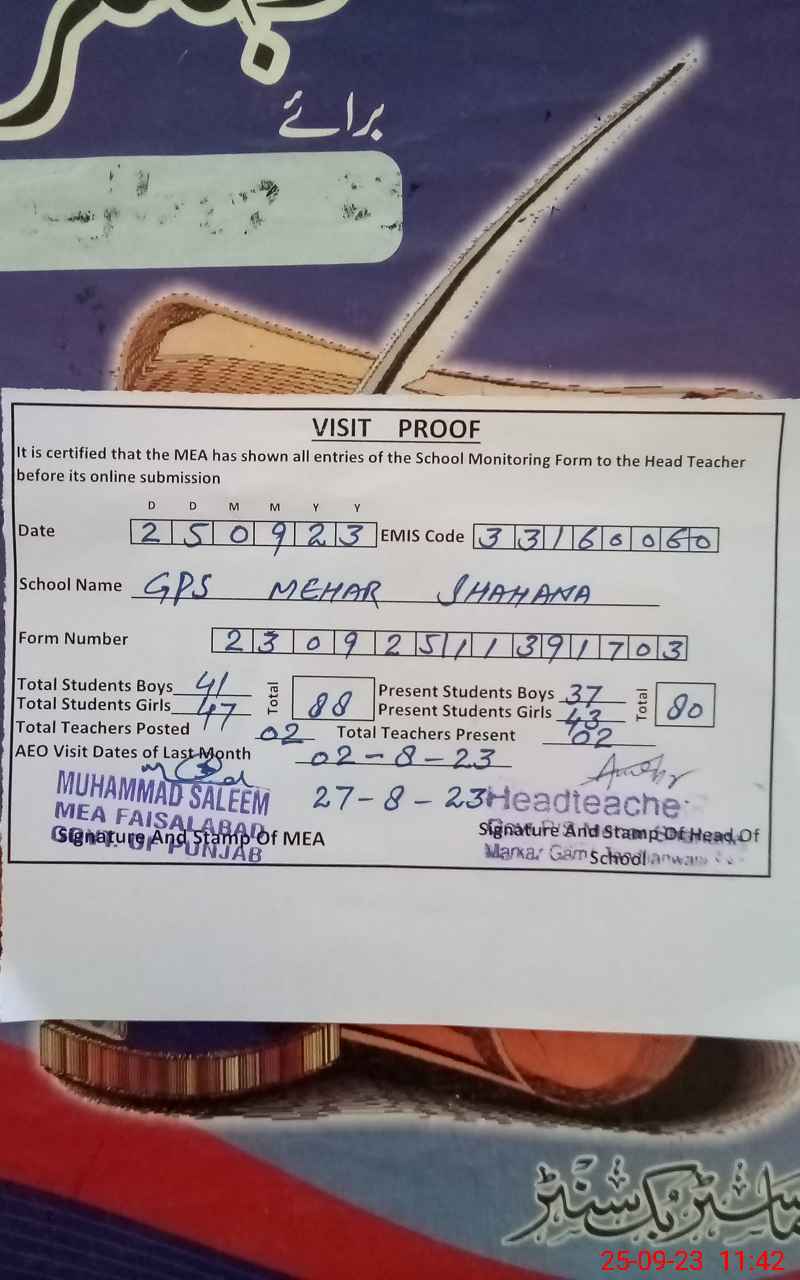 برائے
VISIT PROOF
It is certified that the MEA has shown all entries of the School Monitoring Form to the Head Teacher
before its online submission
D D M M Y Y
Date 2 5 0 9 2 3 EMIS Code 3 3 1 6 0 0 6 0
School Name GPS MEHAR SHAHANA
Form Number 2 3 0 9 2 5 1 1 3 9 1 7 0 3
Total Students Boys 41 Total 88 Present Students Boys 37 Total 80
Total Students Girls 47 Present Students Girls 43
Total Teachers Posted 02 Total Teachers Present 02
AEO Visit Dates of Last Month 02-8-23
27-8-23
MUHAMMAD SALEEM
MEA FAISALABAD
GOVT. OF PUNJAB
Signature And Stamp Of MEA
Headteacher
Signature And Stamp Of Head Of
School
Markaz
ماسٹر بک سنٹر
25-09-23 11:42